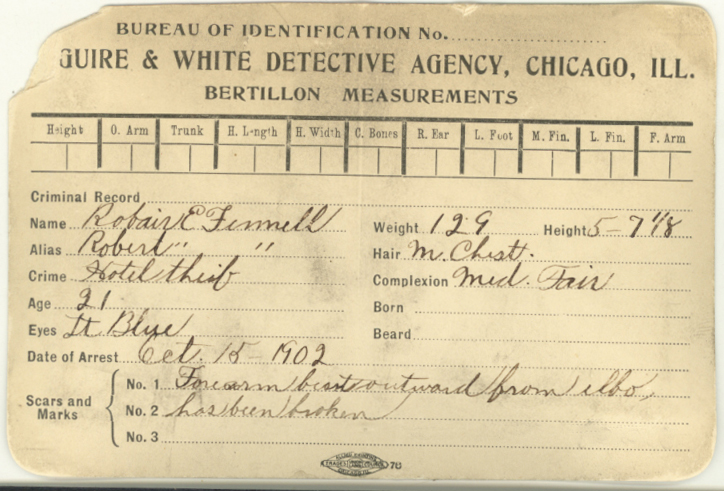 BUREAU OF IDENTIFICATION No.
GUIRE & WHITE DETECTIVE AGENCY, CHICAGO, ILL.
BERTILLON MEASUREMENTS
Height O. Arm Trunk H. Length H. Width C. Bones R. Ear L. Foot M. Fin. L. Fin. F. Arm
Criminal Record
Name Robair E Fennell Weight 129 Height 5-7 1/8
Alias Robert " " Hair M. Chestt.
Crime Hotel thief Complexion Med. Fair
Age 21 Born
Eyes Lt Blue Beard
Date of Arrest Oct. 15-1902
Scars and Marks
No. 1 Forearm bent outward from elbo,
No. 2 has been broken
No. 3